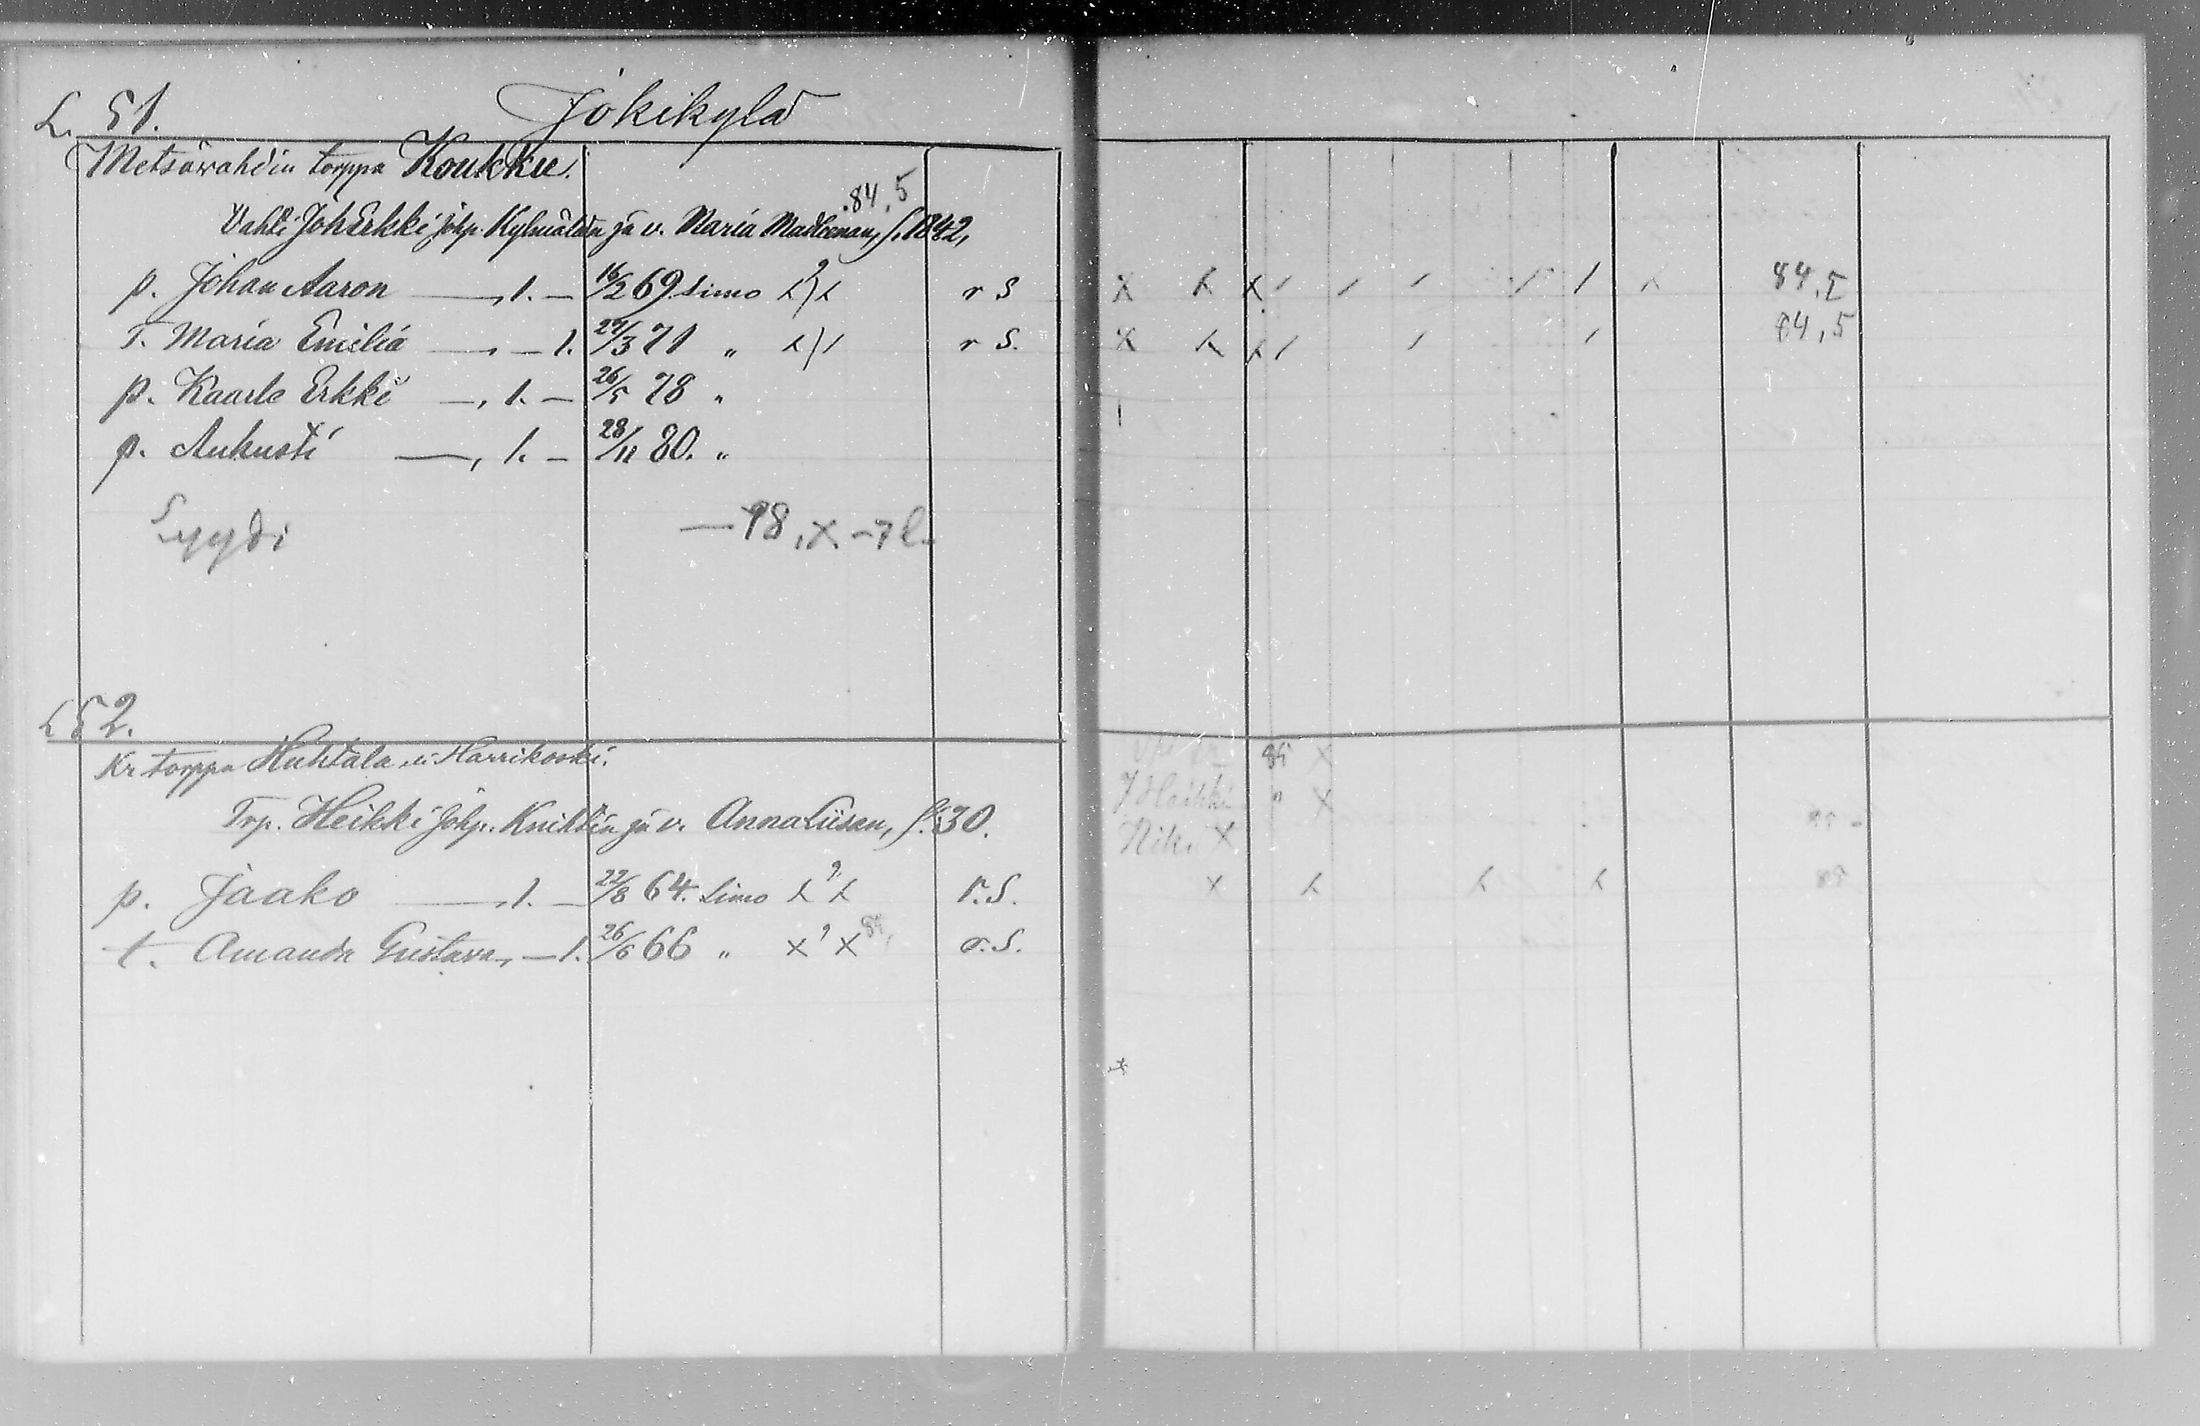 L. 51. Jokikylä
Metsäwahdin torppa Koukku.
84,5
Vahti Joh Erkki Johp. Kylmälän ja v. Maria Madleenan, s. 1842,
p. Johan Aaron —„— l. — 16/2 69 Simo r S 84,5
T. Maria Emilia —„— l. 27/3 71 „ r S. 84,5
p. Kaarle Erkki —„ l. — 26/5 78 „
p. Aukusti —„ l. — 28/11 80. „
Lyydi — 98, X – 7 l.
L 52.
Kr torppa Huhtala, Harrikoski. 84 X
Trp. Heikki Johp. Kniktin ja v. Anna Liisan, s. 30.
Heikki „ X
p. Jaako —„ l. — 22/8 64. Simo r. S. X
t. Amanda Gustava, — l. 26/6 66 „ X ? X 84, r. S.